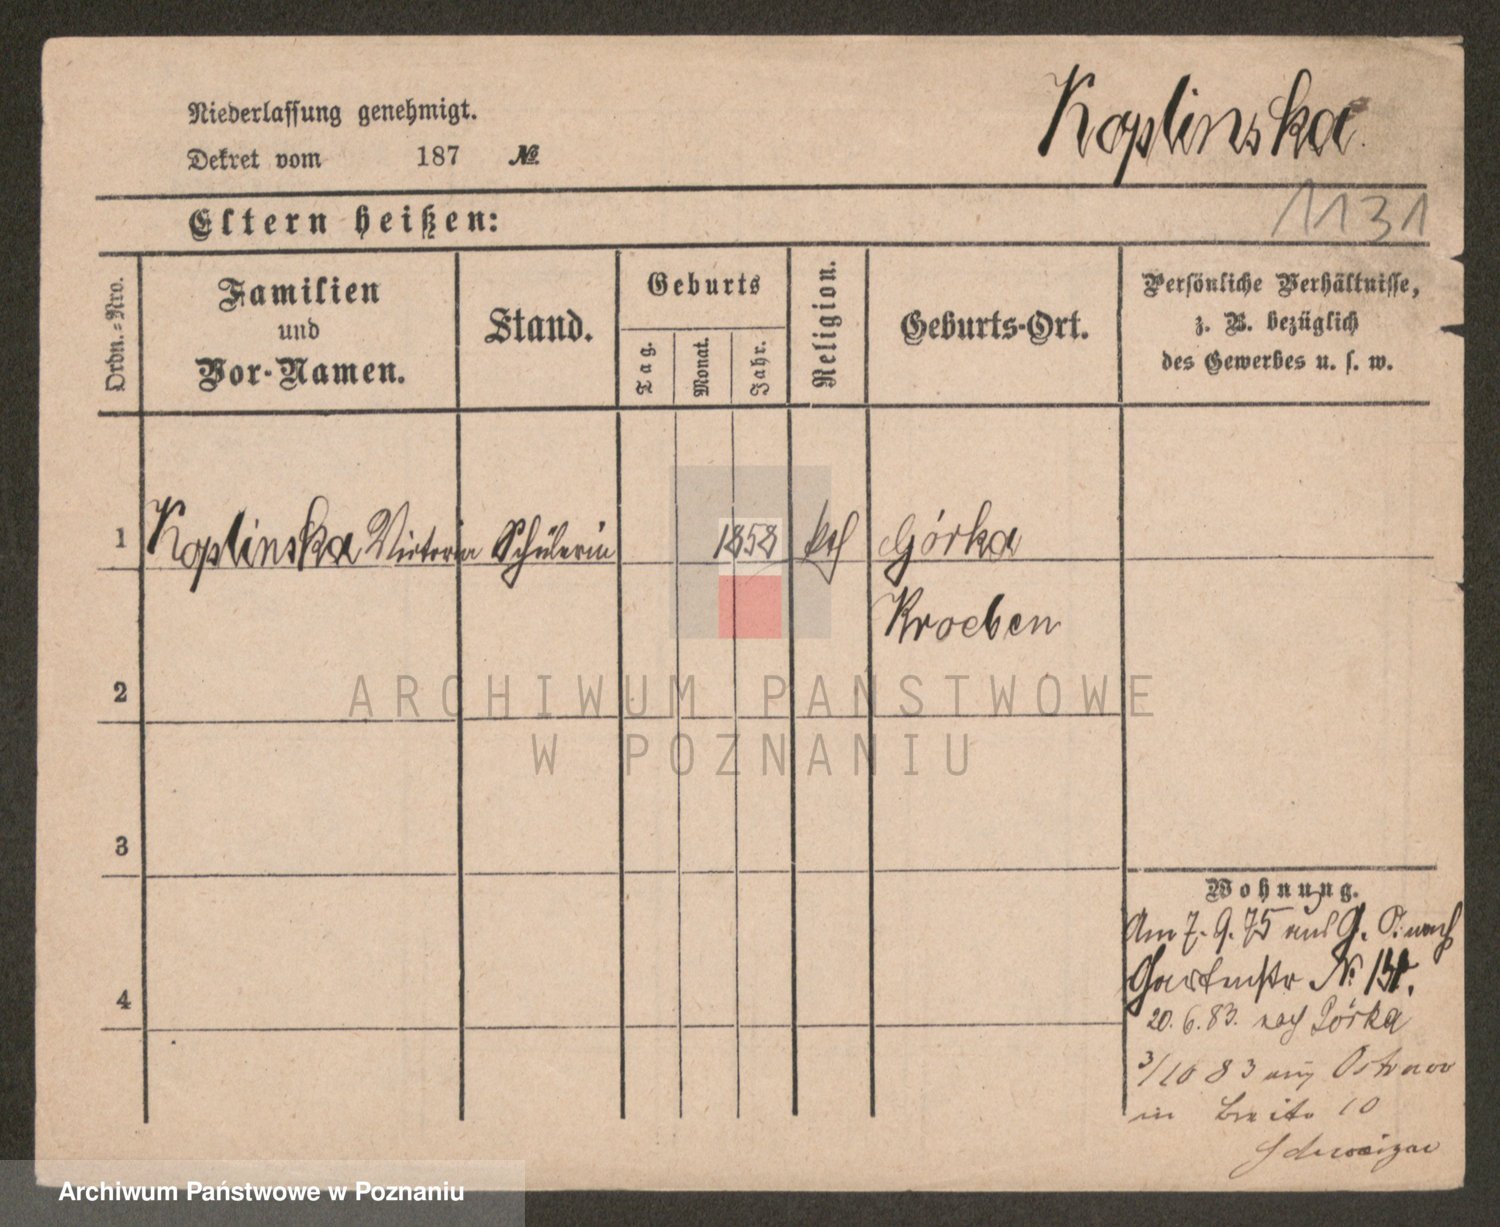 Niederlassung genehmigt.
Koplinska.
Dekret vom 187 №
Eltern heißen:
1131
Ordn.-Nro.
Familien und Vor-Namen.
Stand.
Geburts
Tag.
Monat.
Jahr.
Religion.
Geburts-Ort.
Persönliche Verhältnisse,
z. B. bezüglich
des Gewerbes u. s. w.
1 Koplinska Victoria Schülerin 1858 kath Górka
Kroeben
2
ARCHIWUM PAŃSTWOWE
W POZNANIU
3
Wohnung.
Am 7. 9. 75 aus G. nach
Gartenstr №
4
20. 6. 83. nach Górka
3/10 83 aus Ostrowo
in Breite 10
Archiwum Państwowe w Poznaniu